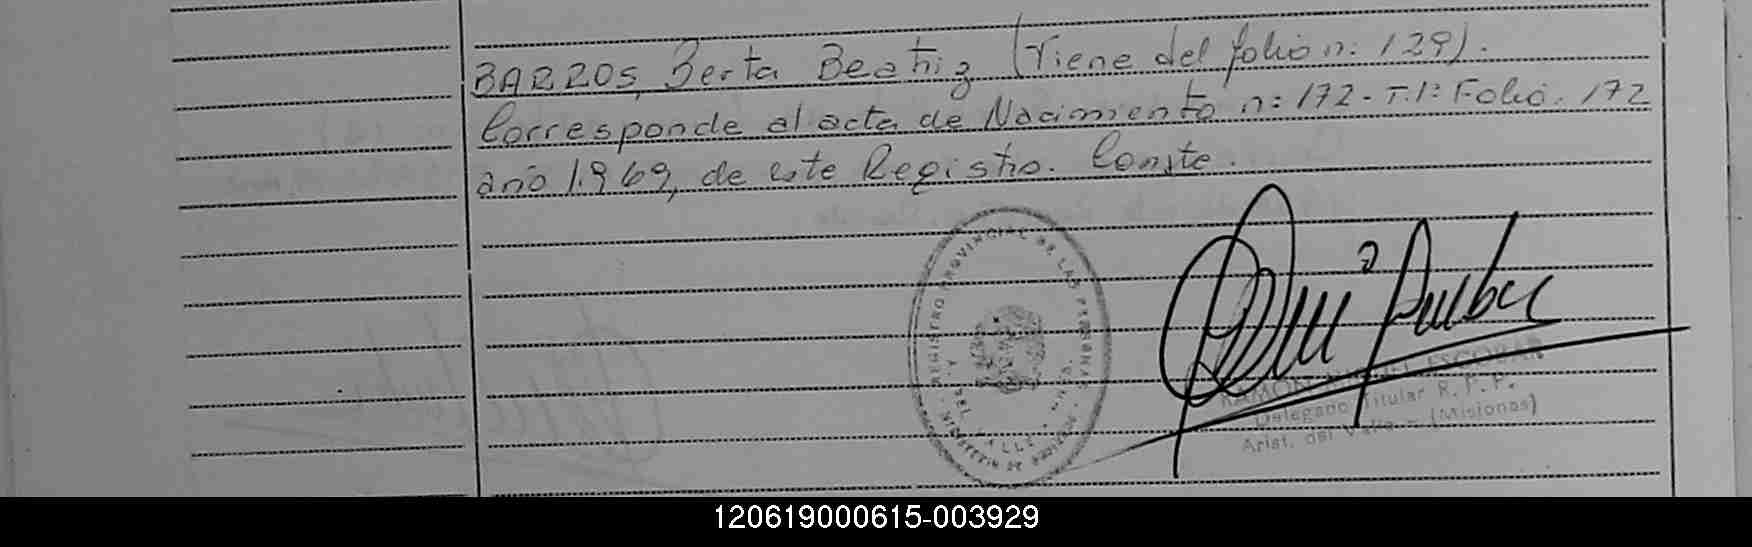 BARROS, Berta Beatriz (Viene del folio n: 129).
Corresponde al acta de Nacimiento n: 172- T.1: Folio. 172
año 1.969, de este Registro. Conste.
REGISTRO PROVINCIAL DE LAS PERSONAS
DEL VALLE
RAMON MIGUEL ESCOBAR
Delegado Titular R. P. P.
Arist. del Valle - (Misiones)
120619000615-003929